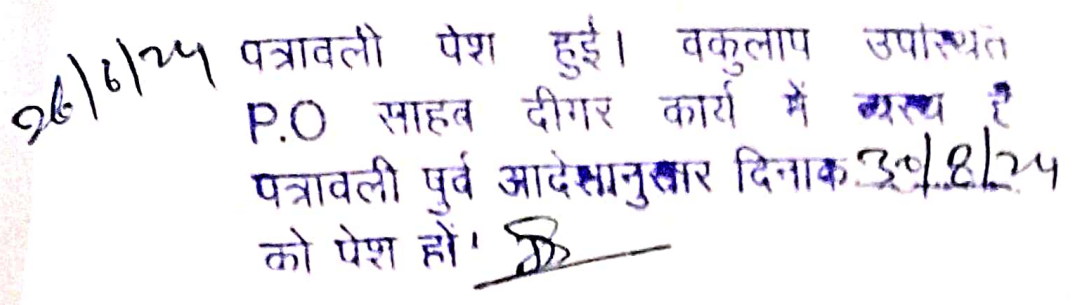 26/6/24 पत्रावली पेश हुई। वकुलाप उपस्थित
P.O साहब दीगर कार्य में व्यस्थ है
पत्रावली पुर्व आदेशानुसार दिनाक 30/8/24
को पेश हों।